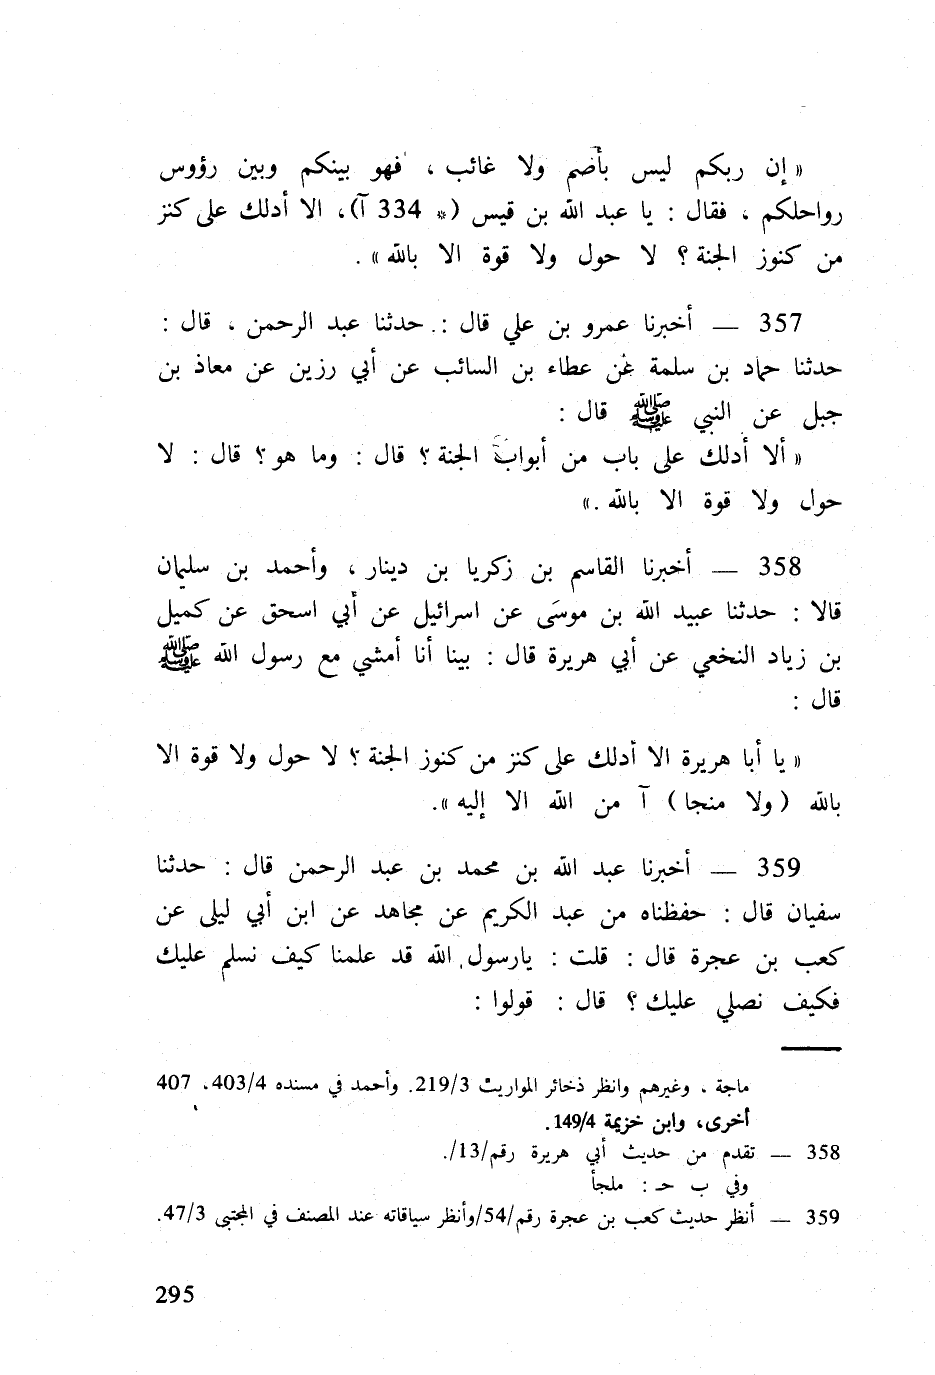 « إن ربكم ليس بأصم ولا غائب ، فهو بينكم وبين رؤوس
رواحلكم ، فقال : يا عبد الله بن قيس (* 334 آ)، الا أدلك على كنز
من كنوز الجنة ؟ لا حول ولا قوة الا بالله » .
357 — أخبرنا عمرو بن علي قال : حدثنا عبد الرحمن ، قال :
حدثنا حماد بن سلمة عن عطاء بن السائب عن أبي رزين عن معاذ بن
جبل عن النبي ﷺ قال :
« ألا أدلك على باب من أبواب الجنة ؟ قال : وما هو ؟ قال : لا
حول ولا قوة الا بالله .»
358 — أخبرنا القاسم بن زكريا بن دينار ، وأحمد بن سليمان
قالا : حدثنا عبيد الله بن موسى عن اسرائيل عن أبي اسحق عن كميل
بن زياد النخعي عن أبي هريرة قال : بينا أنا أمشي مع رسول الله ﷺ
قال :
« يا أبا هريرة الا أدلك على كنز من كنوز الجنة ؟ لا حول ولا قوة الا
بالله ( ولا منجا ) آ من الله الا إليه ».
359 — أخبرنا عبد الله بن محمد بن عبد الرحمن قال : حدثنا
سفيان قال : حفظناه من عبد الكريم عن مجاهد عن ابن أبي ليلى عن
كعب بن عجرة قال : قلت : يارسول الله قد علمنا كيف نسلم عليك
فكيف نصلي عليك ؟ قال : قولوا :
ماجة ، وغيرهم وانظر ذخائر المواريث 219/3. وأحمد في مسنده 403/4، 407
أخرى، وابن خزيمة 149/4.
358 — تقدم من حديث أبي هريرة رقم/13/.
وفي ب حـ : ملجأ
359 — أنظر حديث كعب بن عجرة رقم/54/وأنظر سياقاته عند المصنف في المجتبى 47/3.
295